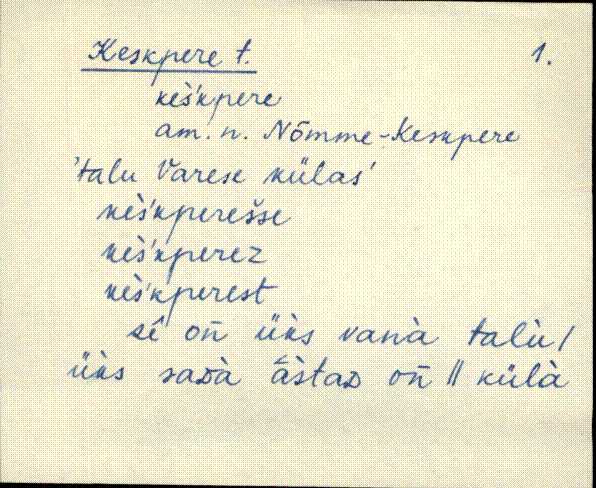 Keskpere t. 1.
keš'kpere
am. n. Nõmme-Keskpere
'talu Varese külas'
kèš'kperešse
kèš'kperez
kèš'kperest
sê on̄ ük̀s vanà talù /
ük̀s saᴅà ās̀taᴅ on̄ || külà